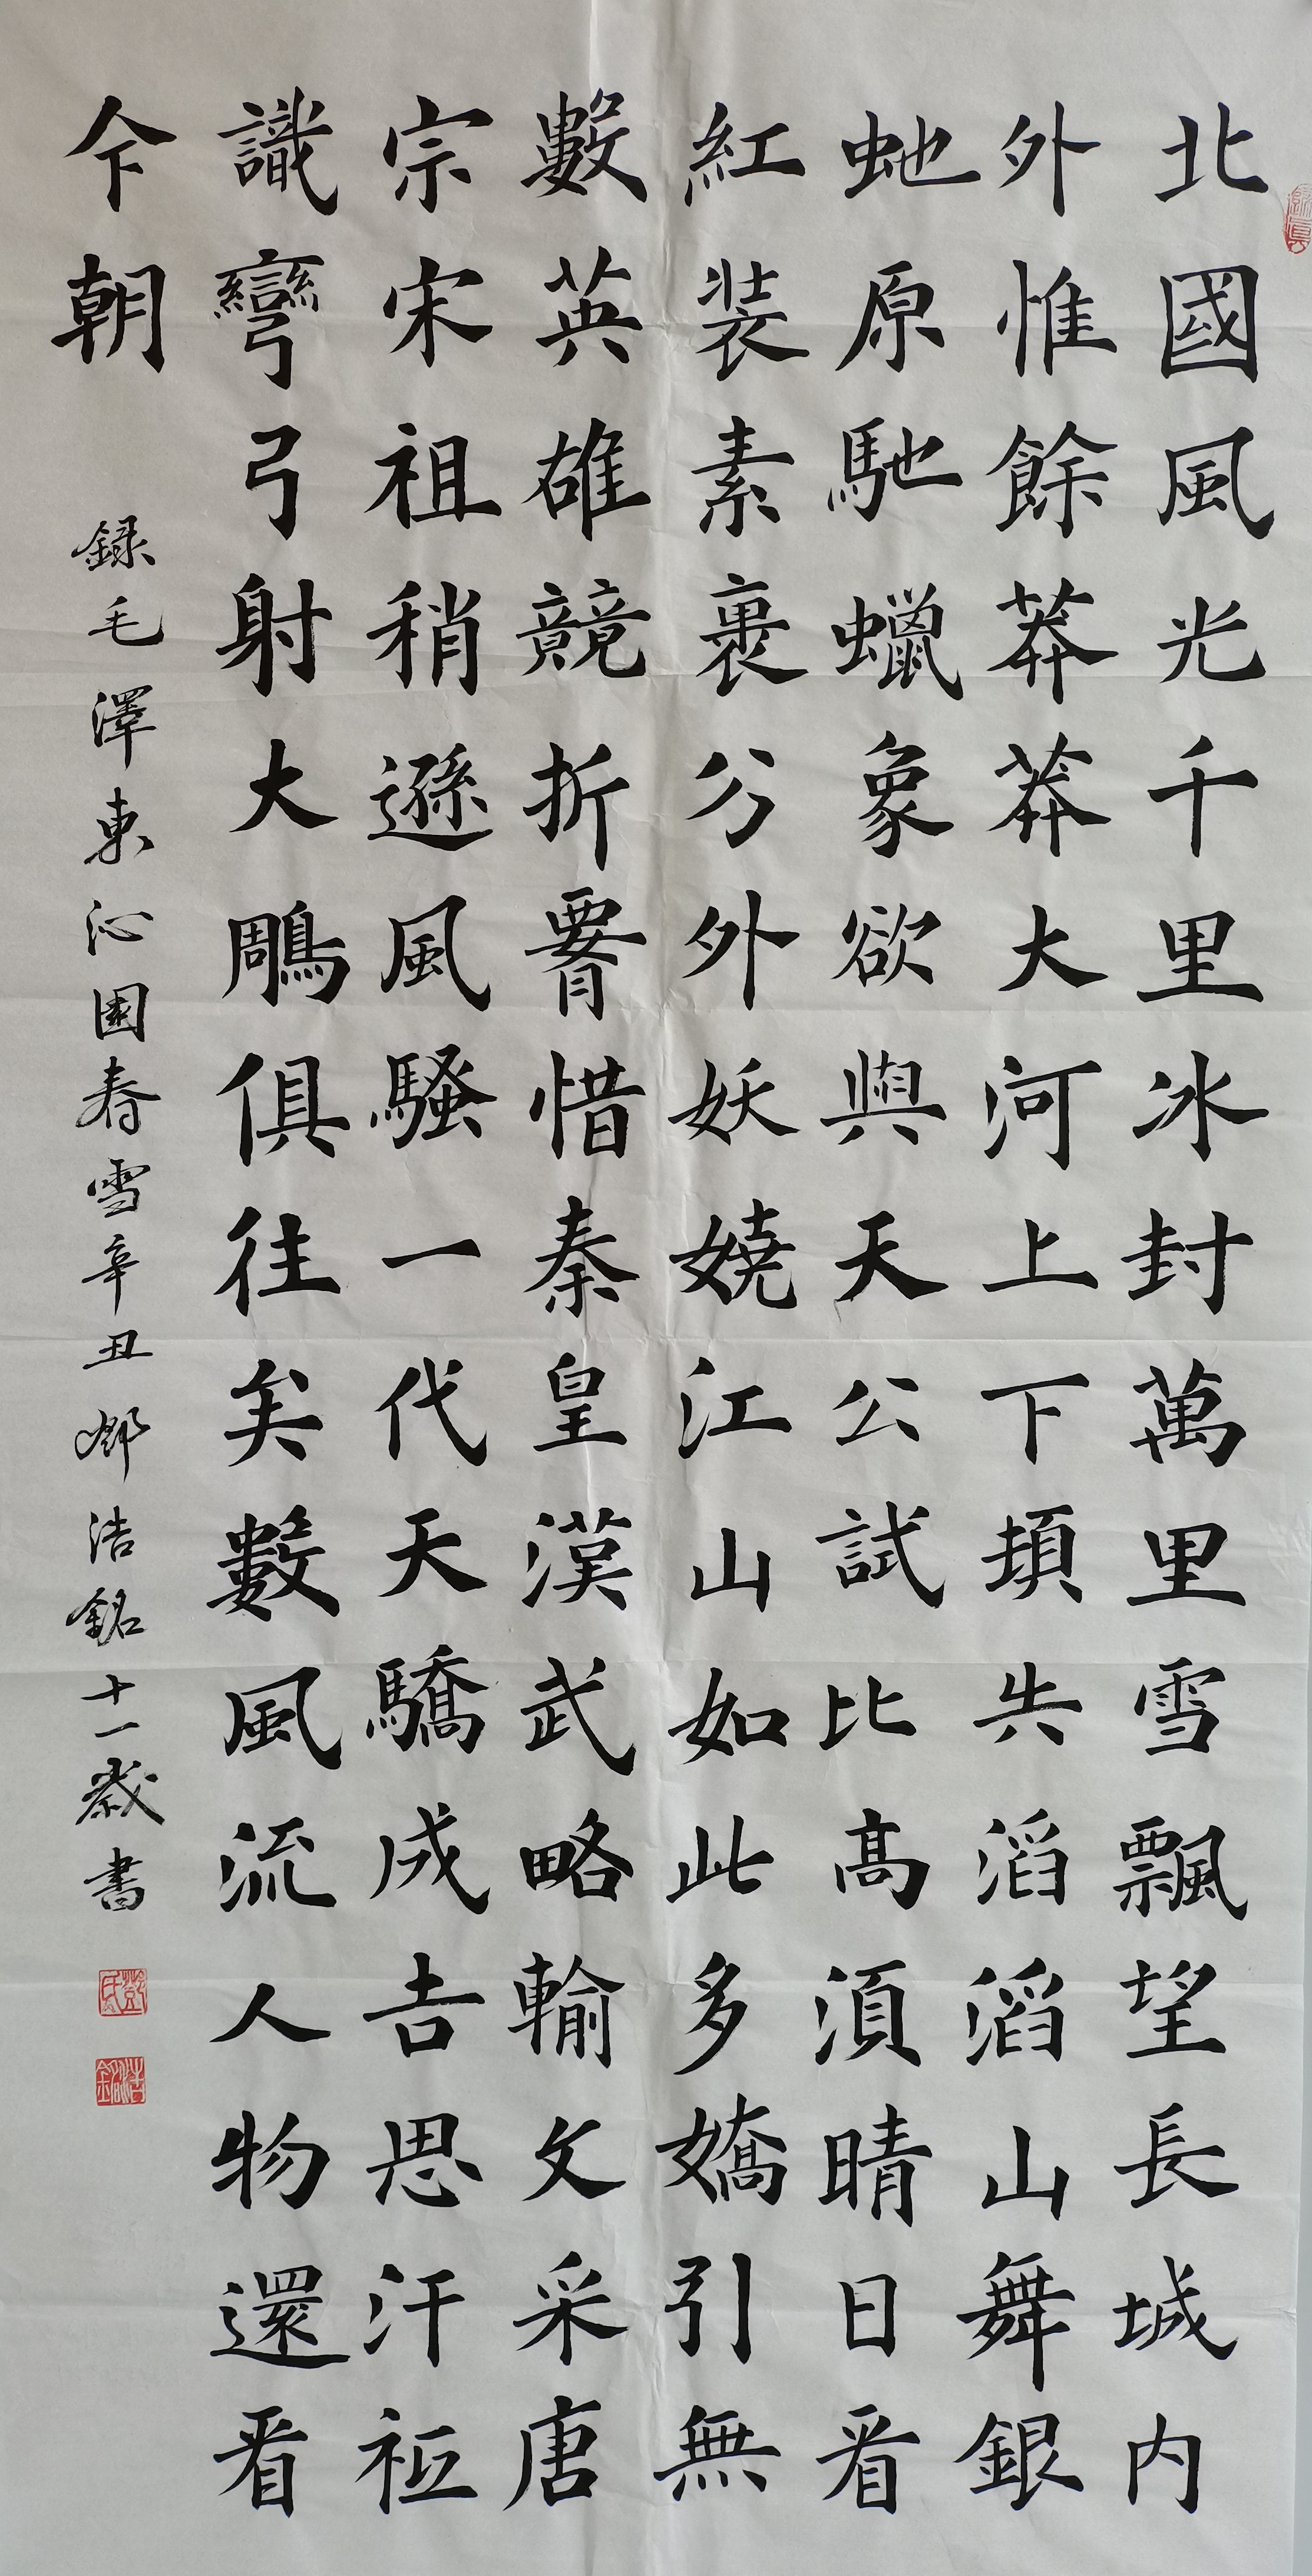 北國風光千里冰封萬里雪飄望長城内
外惟餘莽莽大河上下頓失滔滔山舞銀
虵原馳蠟象欲與天公試比高須晴日看
紅装素裹分外妖嬈江山如此多嬌引無
數英雄競折腰惜秦皇漢武略輸文采唐
宗宋祖稍遜風騷一代天驕成吉思汗祇
識彎弓射大鵰俱往矣數風流人物還看
今朝
録毛澤東沁園春雪辛丑鄧浩銘十一歲書
鄧氏
浩銘